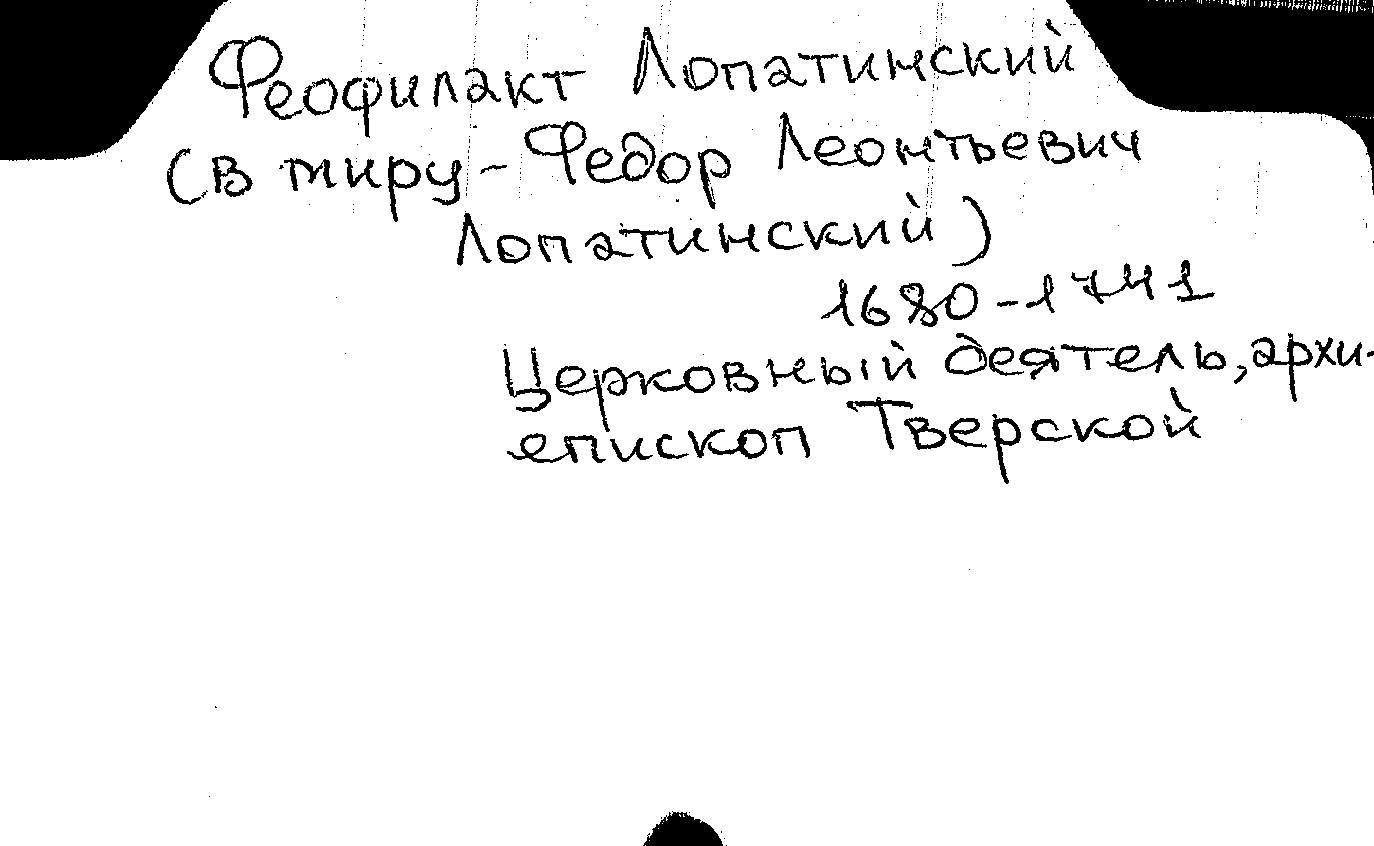 Феофилакт Лопатинский
(в миру - Федор Леонтьевич
Лопатинский)
1680-1741
Церковный деятель, архи-
епископ Тверской